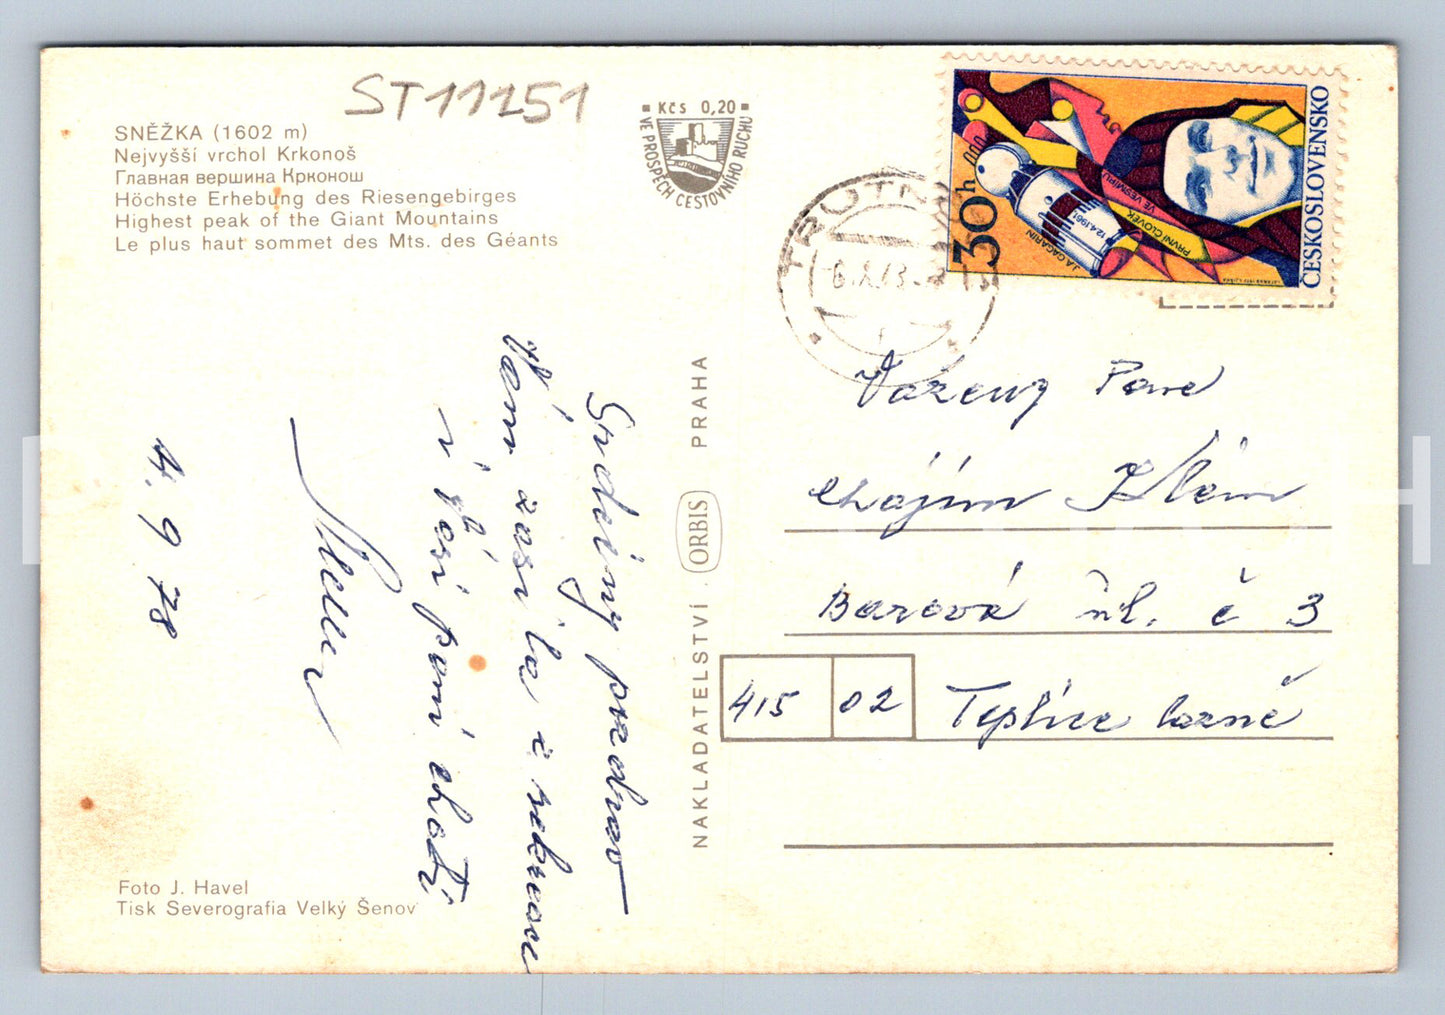 ST11251
SNĚŽKA (1602 m)
Nejvyšší vrchol Krkonoš
Главная вершина Крконош
Höchste Erhebung des Riesengebirges
Highest peak of the Giant Mountains
Le plus haut sommet des Mts. des Géants
Kčs 0,20
VE PROSPĚCH CESTOVNÍHO RUCHU
30h
ČESKOSLOVENSKO
J.A. GAGARIN
12.4.1961
PRVNÍ ČLOVĚK
VE VESMÍRU
Srdečný pozdrav
Vám zasílá z rekreace
i Vaší paní choti
4. 9 78
Vážený Pane
Chájim
Barová ul. č 3
415 02 Teplice lázně
NAKLADATELSTVÍ ORBIS PRAHA
Foto J. Havel
Tisk Severografia Velký Šenov